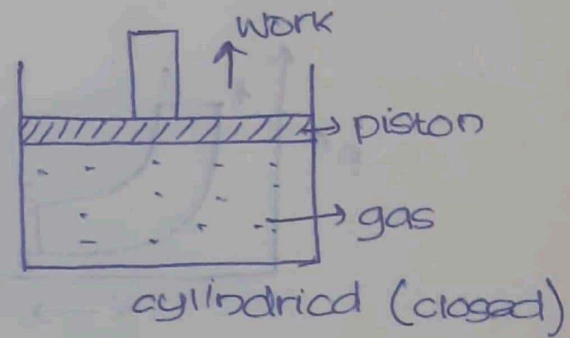 work
piston
gas
cylindricd (closed)